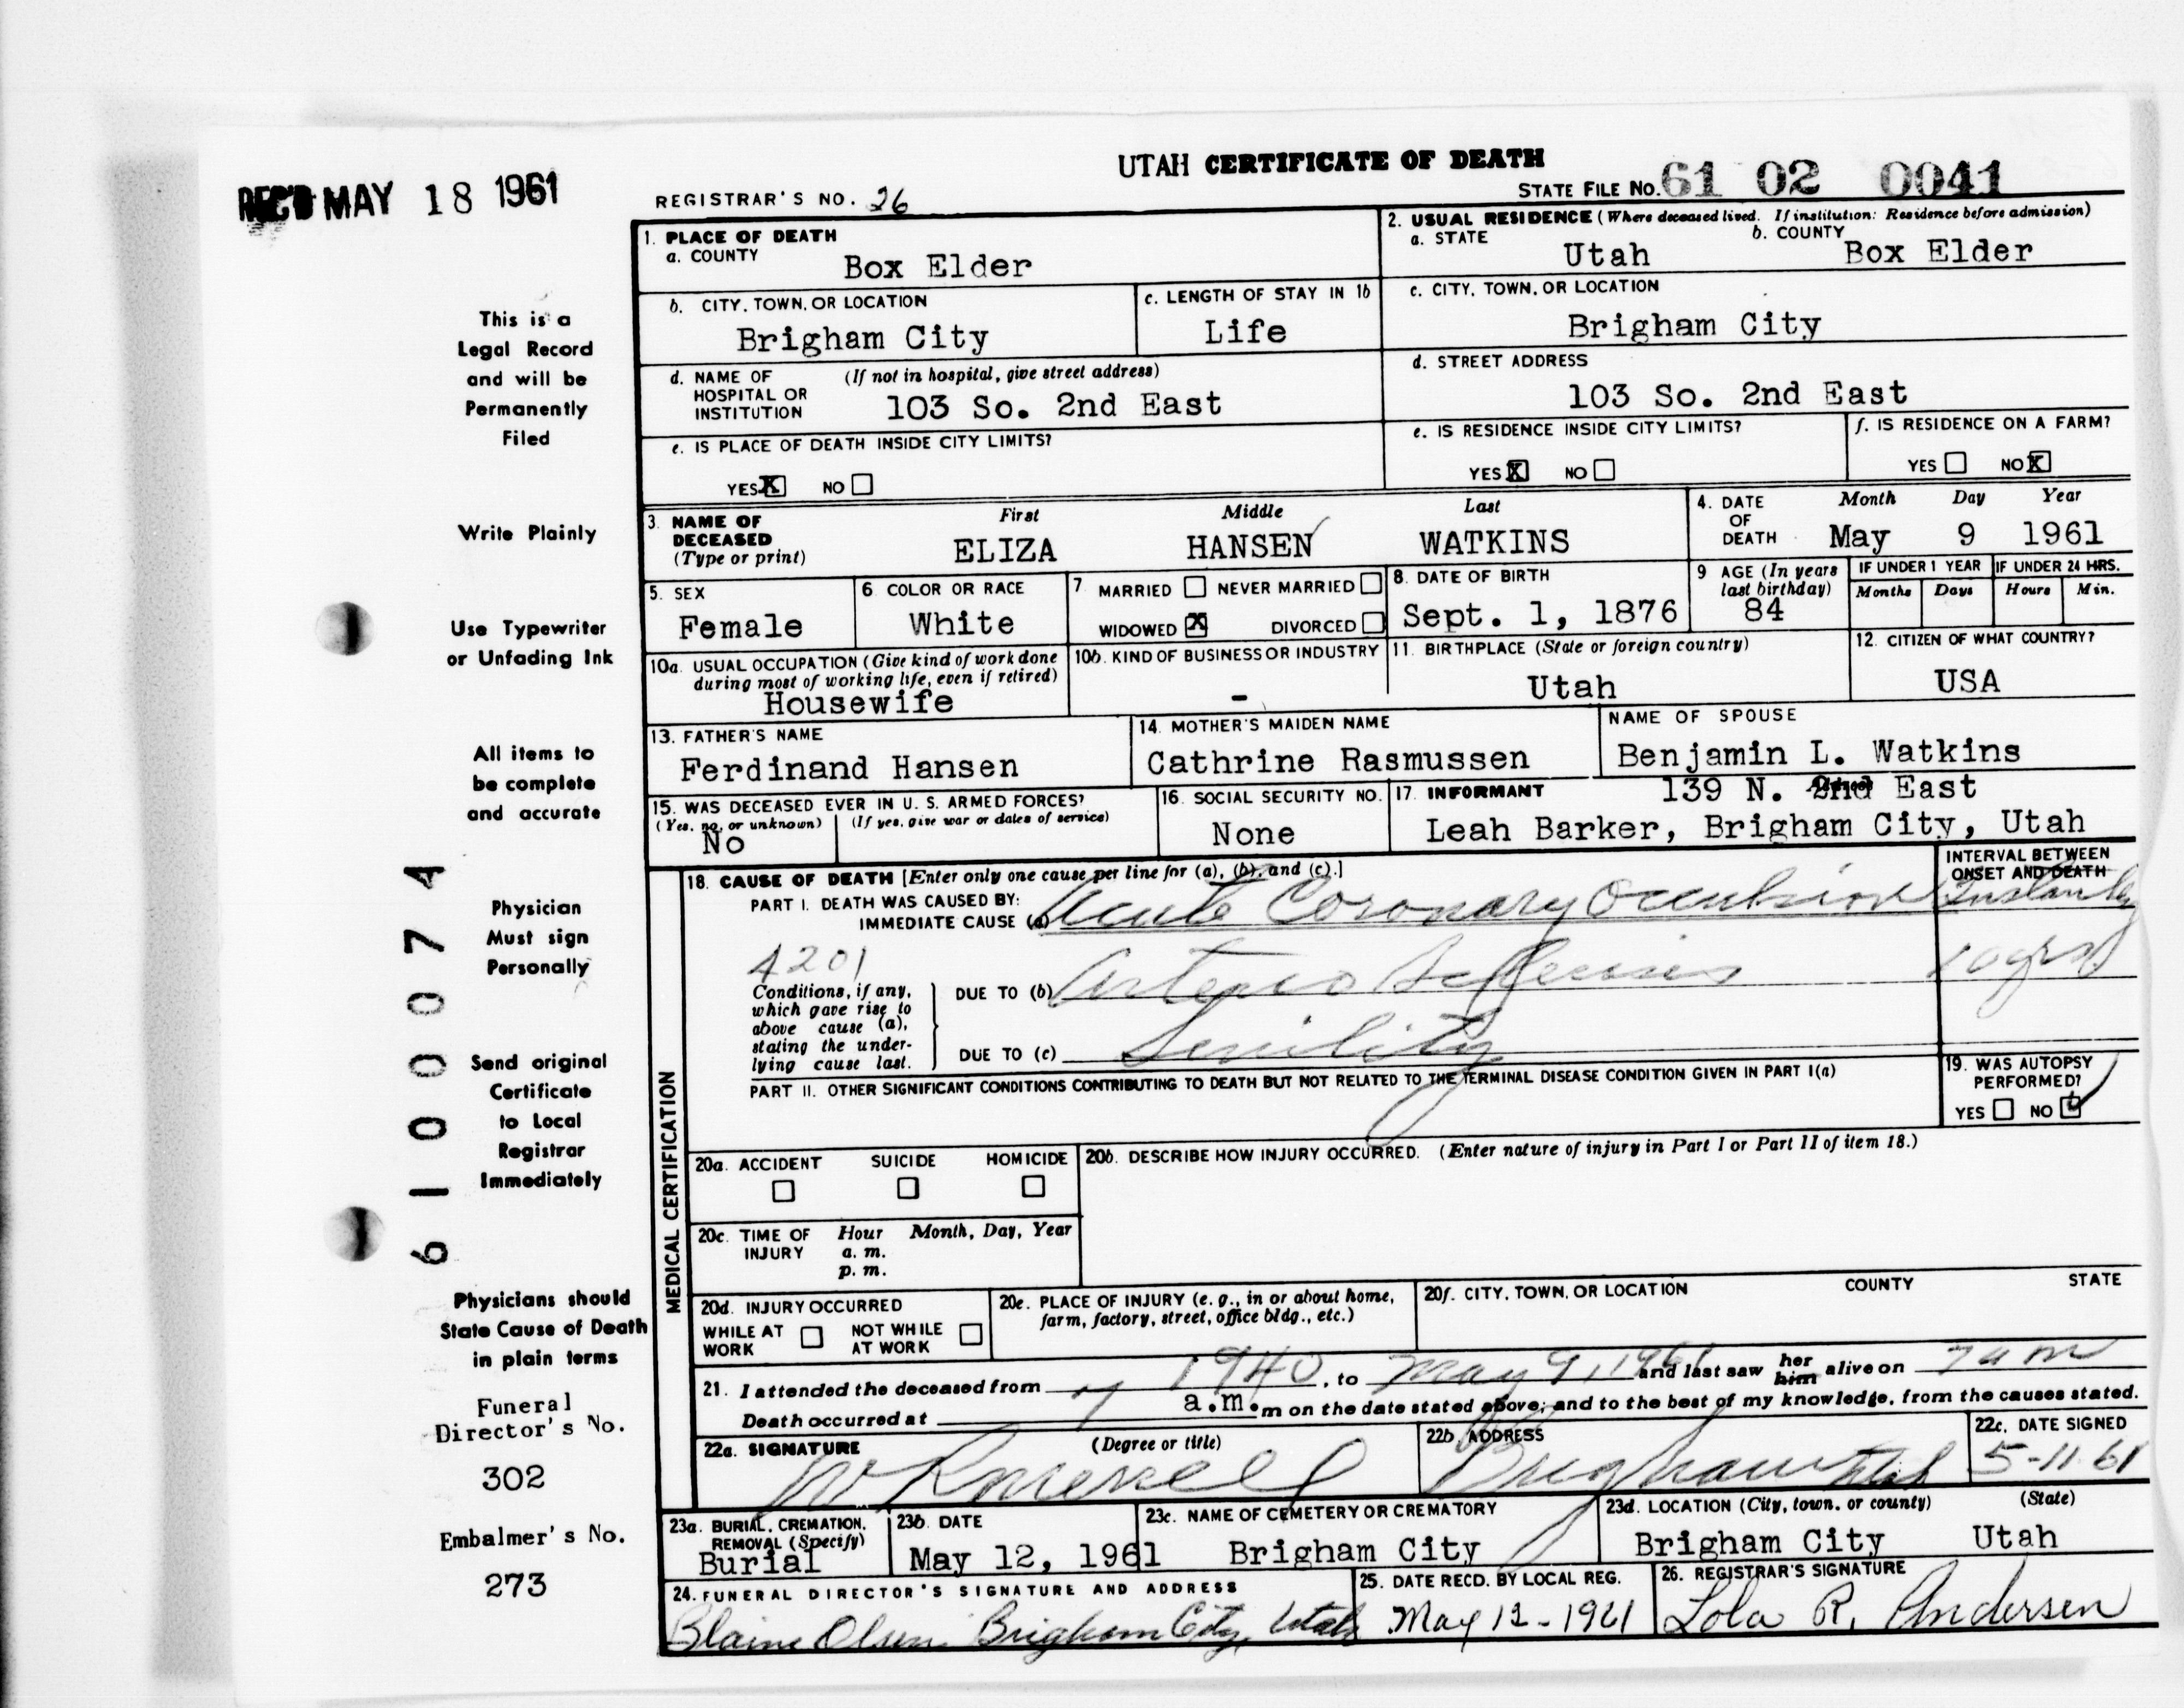 UTAH CERTIFICATE OF DEATH
REC'D MAY 18 1961
REGISTRAR'S NO. 26
STATE FILE NO. 61 02 0041
1. PLACE OF DEATH
a. COUNTY
Box Elder
2. USUAL RESIDENCE (Where deceased lived. If institution: Residence before admission)
a. STATE
Utah
b. COUNTY
Box Elder
b. CITY, TOWN, OR LOCATION
Brigham City
c. LENGTH OF STAY IN 1b
Life
c. CITY, TOWN, OR LOCATION
Brigham City
d. NAME OF HOSPITAL OR INSTITUTION
(If not in hospital, give street address)
103 So. 2nd East
d. STREET ADDRESS
103 So. 2nd East
e. IS PLACE OF DEATH INSIDE CITY LIMITS?
YES X NO
e. IS RESIDENCE INSIDE CITY LIMITS?
YES X NO
f. IS RESIDENCE ON A FARM?
YES NO X
3. NAME OF DECEASED
(Type or print)
First Middle Last
ELIZA HANSEN WATKINS
4. DATE OF DEATH
Month Day Year
May 9 1961
5. SEX
Female
6. COLOR OR RACE
White
7. MARRIED NEVER MARRIED
WIDOWED X DIVORCED
8. DATE OF BIRTH
Sept. 1, 1876
9 AGE (In years last birthday)
84
IF UNDER 1 YEAR
Months Days
IF UNDER 24 HRS.
Hours Min.
10a. USUAL OCCUPATION (Give kind of work done during most of working life, even if retired)
Housewife
10b. KIND OF BUSINESS OR INDUSTRY
-
11. BIRTHPLACE (State or foreign country)
Utah
12. CITIZEN OF WHAT COUNTRY?
USA
13. FATHER'S NAME
Ferdinand Hansen
14. MOTHER'S MAIDEN NAME
Cathrine Rasmussen
NAME OF SPOUSE
Benjamin L. Watkins
15. WAS DECEASED EVER IN U. S. ARMED FORCES?
(Yes, no, or unknown) (If yes, give war or dates of service)
No
16. SOCIAL SECURITY NO.
None
17. INFORMANT
139 N. 2nd East
Leah Barker, Brigham City, Utah
MEDICAL CERTIFICATION
18. CAUSE OF DEATH [Enter only one cause per line for (a), (b), and (c).]
INTERVAL BETWEEN ONSET AND DEATH
PART I. DEATH WAS CAUSED BY:
IMMEDIATE CAUSE (a) Acute Coronary Occulsion
4201
Conditions, if any, which gave rise to above cause (a), stating the underlying cause last.
DUE TO (b) Arterio
10 yrs
DUE TO (c) Senility
PART II. OTHER SIGNIFICANT CONDITIONS CONTRIBUTING TO DEATH BUT NOT RELATED TO THE TERMINAL DISEASE CONDITION GIVEN IN PART I(a)
19. WAS AUTOPSY PERFORMED?
YES NO
20a. ACCIDENT SUICIDE HOMICIDE
20b. DESCRIBE HOW INJURY OCCURRED. (Enter nature of injury in Part I or Part II of item 18.)
20c. TIME OF INJURY
Hour Month, Day, Year
a. m.
p. m.
20d. INJURY OCCURRED
WHILE AT WORK NOT WHILE AT WORK
20e. PLACE OF INJURY (e. g., in or about home, farm, factory, street, office bldg., etc.)
20f. CITY, TOWN, OR LOCATION COUNTY STATE
21. I attended the deceased from 1940, to May 9, 1961 and last saw her him alive on 7 am
Death occurred at 7 a.m. m on the date stated above; and to the best of my knowledge, from the causes stated.
22a. SIGNATURE (Degree or title)
22b ADDRESS
Brigham Utah
22c. DATE SIGNED
5-11 61
23a. BURIAL, CREMATION, REMOVAL (Specify)
Burial
23b. DATE
May 12, 1961
23c. NAME OF CEMETERY OR CREMATORY
Brigham City
23d. LOCATION (City, town, or county) (State)
Brigham City Utah
24. FUNERAL DIRECTOR'S SIGNATURE AND ADDRESS
Blaine Olsen Brigham City, Utah
25. DATE RECD. BY LOCAL REG.
May 12-1961
26. REGISTRAR'S SIGNATURE
Lola R. Andersen
This is a
Legal Record
and will be
Permanently
Filed
Write Plainly
Use Typewriter
or Unfading Ink
All items to
be complete
and accurate
Physician
Must sign
Personally
Send original
Certificate
to Local
Registrar
Immediately
Physicians should
State Cause of Death
in plain terms
Funeral
Director's No.
302
Embalmer's No.
273
6100074